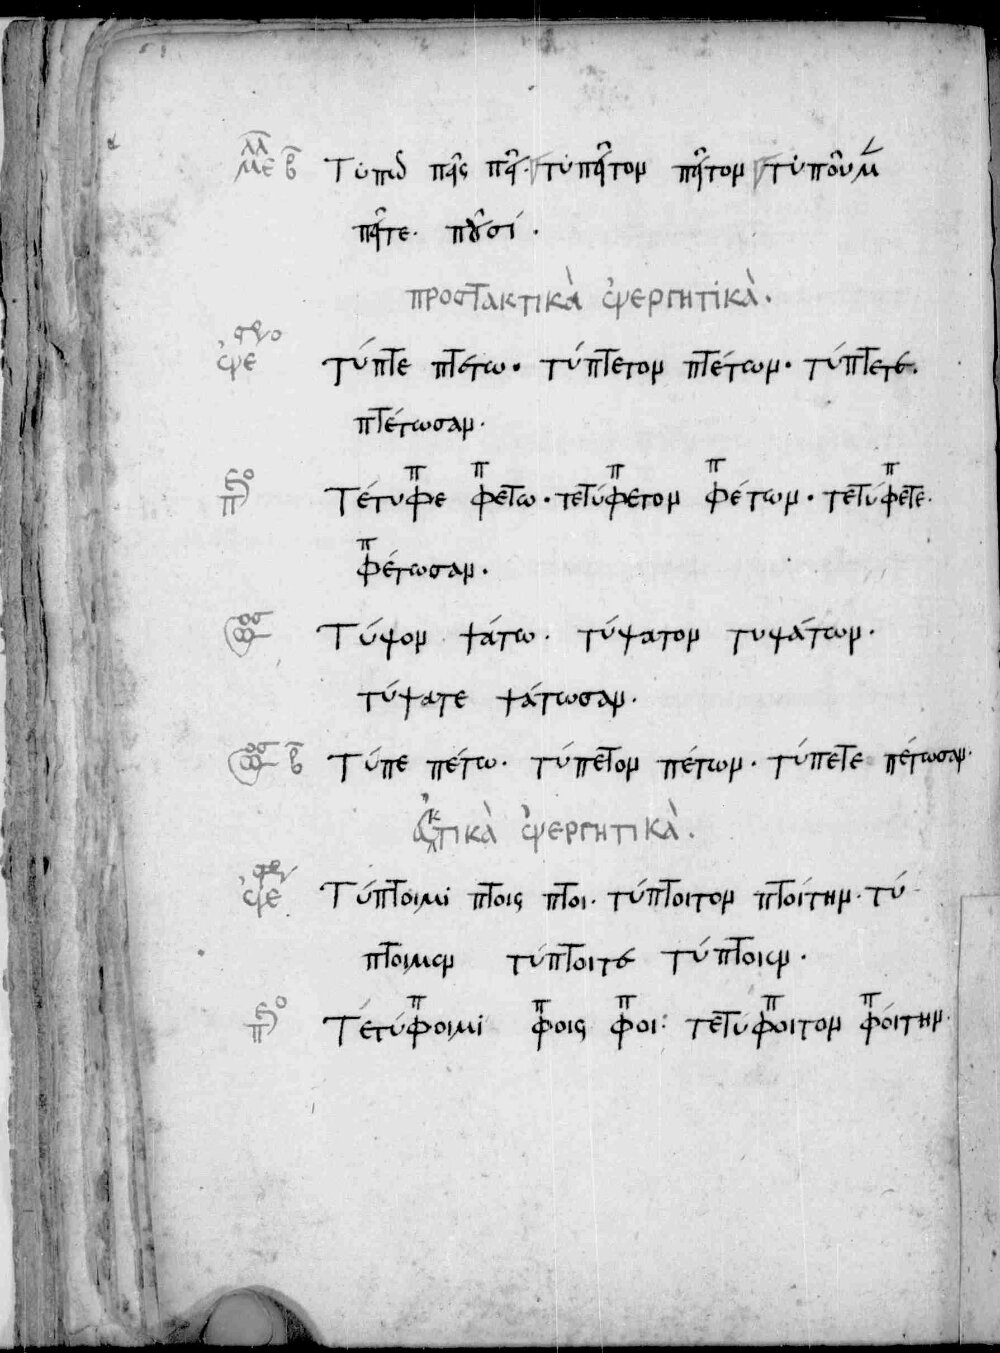 μέλλ β Τυπῶ πεῖς πεῖ· τυπεῖτον πεῖτον τυποῦμεν
πεῖτε· ποῦσι·
προστακτικὰ ἐνεργητικὰ·
ἐνε Τύπτε πτέτω· τύπτετον πτέτων· τύπτετε·
πτέτωσαν·
Τέτυφε φέτω· τετύφετον φέτων· τετύφετε·
φέτωσαν·
Τύψον ψάτω· τύψατον τυψάτων·
τύψατε ψάτωσαν·
β Τύπε πέτω· τύπετον πέτων· τύπετε πέτωσαν·
εὐκτικὰ ἐνεργητικὰ·
ἐνε Τύπτοιμι πτοις πτοι· τύπτοιτον πτοίτην· τύ
πτοιμεν τύπτοιτε τύπτοιεν·
Τετύφοιμι φοις φοι· τετύφοιτον φοίτην·